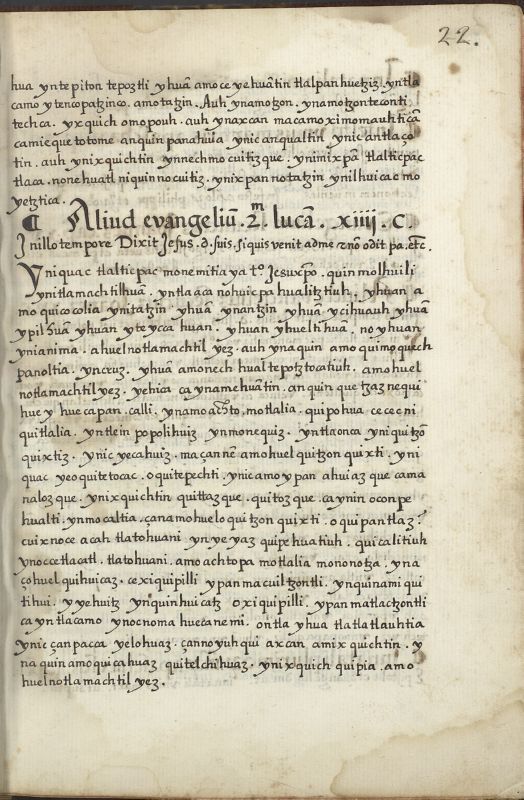 22.
hua yntepiton tepoztli yhuā amo ce yehuātin tlalpan huetziz. yntla
camo ytencopatzinco. amotatzin. Auh ynamotzon. ynamotzonteconti
techca. yxquich omopouh. auh ynaxcan macamo ximomauhticā
camieque totome anquin panahuia ynic anqualtin ynic antlaço
tin. auh ynixquichtin ynnechmocuitizque. ynimixpā tlalticpac
tlaca. no nehuatl niquinnocuitiz. ynixpan notatzin ynilhuicac mo
yetztica.
¶ Aliud evangeliū. 2m. lucā. xiiij. C.
In illo tempore Dixit Jesus. d. suis. si quis venit ad me & nō odit pa. etc.
Yniquac tlalticpac monemitiaya to. Jesuxpo. quinmolhuili
ynitlamachtilhuā. yntla aca nohuicpa hualitztiuh. yhuan a
mo quicocolia ynitatzin. yhuā ynantzin yhuā ycihuauh yhuā
ypilhuā yhuan yteycca huan. yhuan yhueltihuā. no yhuan
ynianima. ahuel notlamachtil yez. auh ynaquin amo quimoquech
panoltia. yncruz. yhuā amo nech hualtepotztocatiuh. amo huel
notlamachtil yez. yehica ca yn amehuātin. anquin quetzaznequi
huey huecapan. calli. ynamo achto. motlalia. quipohua cecenni
quitlalia. yntlein popolihuiz ynmonequiz. yntla onca yniquitzō
quixtiz. ynic yecahuiz. maçannē amo huel quitzonquixti. yni
quac yeoquitetocac. oquitepechti. ynic amo ypan ahuiazque cama
nalozque. ynixquichtin quittazque. quitozque. ca ynin oconpe
hualti. ynmocaltia. çanamo huelo quitzonquixti. oquipantlaz?
cuix noce acah tlatohuani ynyeyaz quipehuatiuh. quicalitiuh
ynoccetlacatl. tlatohuani. amo achtopa motlalia mononotza. yna
ço huel quihuicaz. cexiquipilli ypanmacuiltzontli. ynquinamiqui
tihui. yyehuitz ynquinhuicatz oxiquipilli. ypan matlactzontli
ca yntlacamo ynocnoma huecanemi. ontlayhua tlatlatlauhtia
ynic çanpacca yelohuaz. çannoyuhqui axcan amixquichtin. y
naquin amo quicahuaz quitelchihuaz. ynixquich quipia. amo
huel notlamachtil yez.